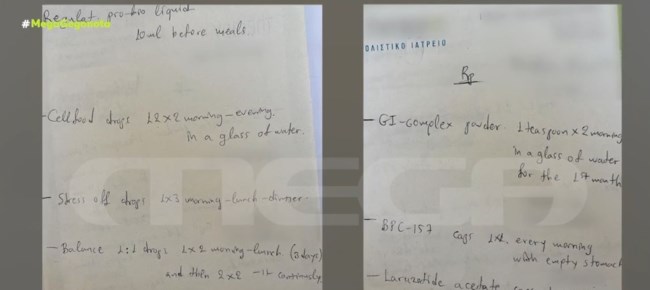 #MegaGegonota
Regulat pro bio liquid
10ml before meals.
- Cellfood drops 12 x 2 morning - evening
in a glass of water.
- Stress off drops 1x3 morning - lunch - dinner
- Balance 1:1 drops 1x2 morning - lunch (3 days)
and then 2x2 continously
ΟΛΙΣΤΙΚΟ ΙΑΤΡΕΙΟ
Rp
- GI-complex powder 1 teaspoon x 2 morning
in a glass of water
for the 1st month
- BPC-157 caps 1x1, every morning
with empty stomach
- Larazotide acetate
MEGA